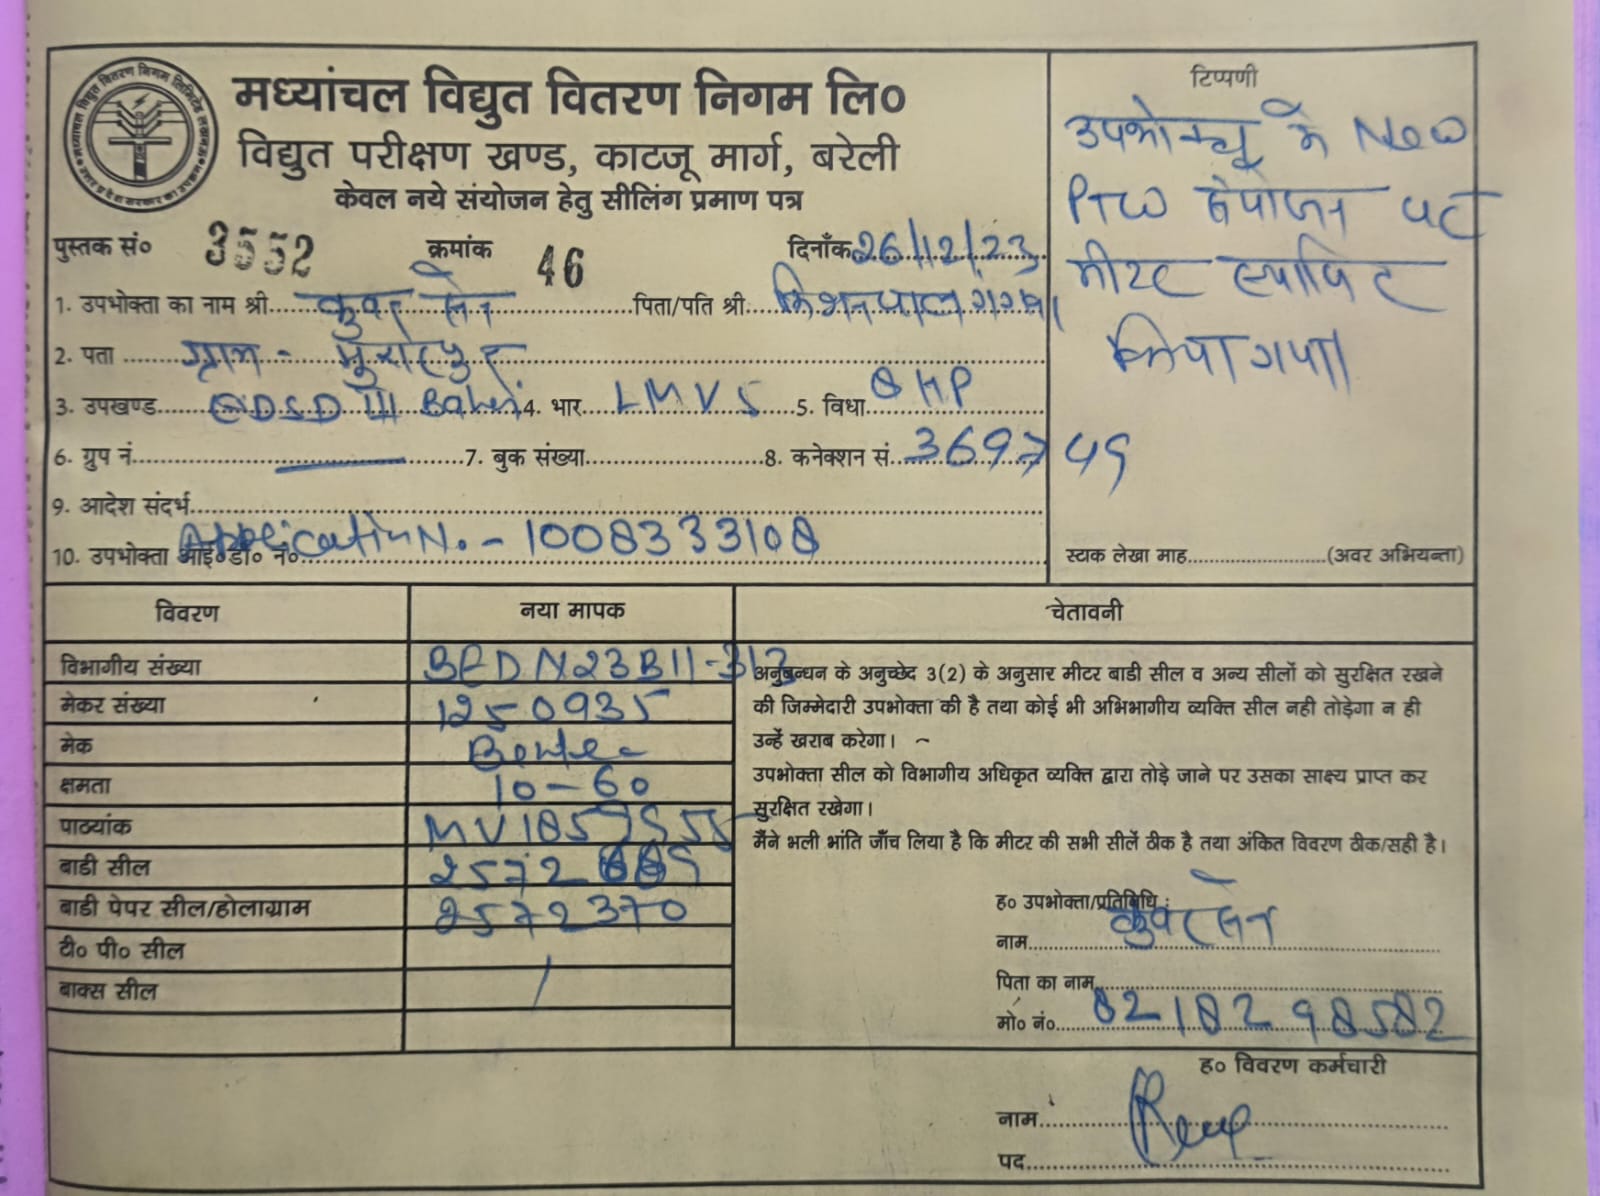 मध्यांचल विद्युत वितरण निगम लि०
विद्युत परीक्षण खण्ड, काटजू मार्ग, बरेली
केवल नये संयोजन हेतु सीलिंग प्रमाण पत्र
पुस्तक सं० 3552 क्रमांक 46 दिनाँक 26/12/23
1. उपभोक्ता का नाम श्री कुवर सेन पिता/पति श्री
2. पता ग्राम -
3. उपखण्ड EDSD III 4. भार LMV5 5. विधा 8 HP
6. ग्रुप नं. 7. बुक संख्या 8. कनेक्शन सं.
9. आदेश संदर्भ
Application No. - 1008333108
10. उपभोक्ता आई०डी० नं०
टिप्पणी
के New
PTW संयोजन पर
मीटर स्थापित
किया गया।
स्टाक लेखा माह (अवर अभियन्ता)
विवरण नया मापक
विभागीय संख्या BEDN23B11-313
मेकर संख्या 1250935
मेक
क्षमता 10-60
पाठ्यांक
बाडी सील
बाडी पेपर सील/होलाग्राम 2572370
टी० पी० सील
बाक्स सील /
चेतावनी
अनुबन्धन के अनुच्छेद 3(2) के अनुसार मीटर बाडी सील व अन्य सीलों को सुरक्षित रखने
की जिम्मेदारी उपभोक्ता की है तथा कोई भी अभिभागीय व्यक्ति सील नही तोड़ेगा न ही
उन्हें खराब करेगा।
उपभोक्ता सील को विभागीय अधिकृत व्यक्ति द्वारा तोड़े जाने पर उसका साक्ष्य प्राप्त कर
सुरक्षित रखेगा।
मैंने भली भांति जाँच लिया है कि मीटर की सभी सीलें ठीक है तथा अंकित विवरण ठीक/सही है।
ह० उपभोक्ता/प्रतिनिधि :
नाम कुवर सेन
पिता का नाम
मो० नं० 8218298582
ह० विवरण कर्मचारी
नाम
पद